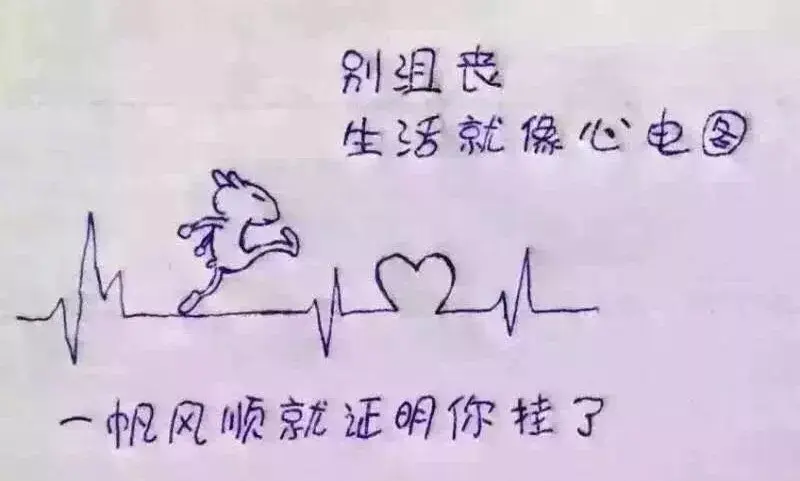 别沮丧
生活就像心电图
一帆风顺就证明你挂了